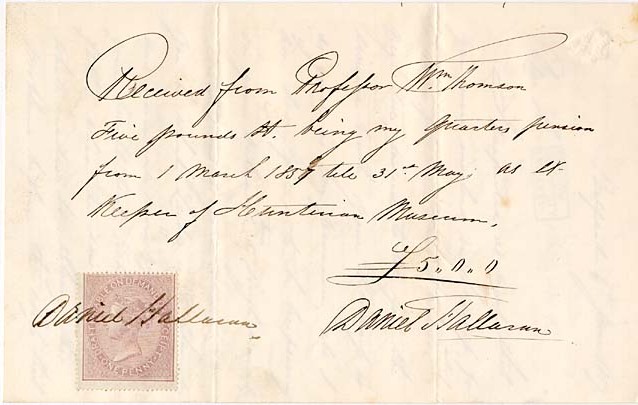 Received from Professor Wm Thomson
Five pounds St. being my quarters pension
from 1 March 1857 till 31st May, as ex-
Keeper of Hunterian Museum.
£5.,0.,0
Daniel Hallaran
Daniel Hallaran
ON DEMAND
ONE PENNY